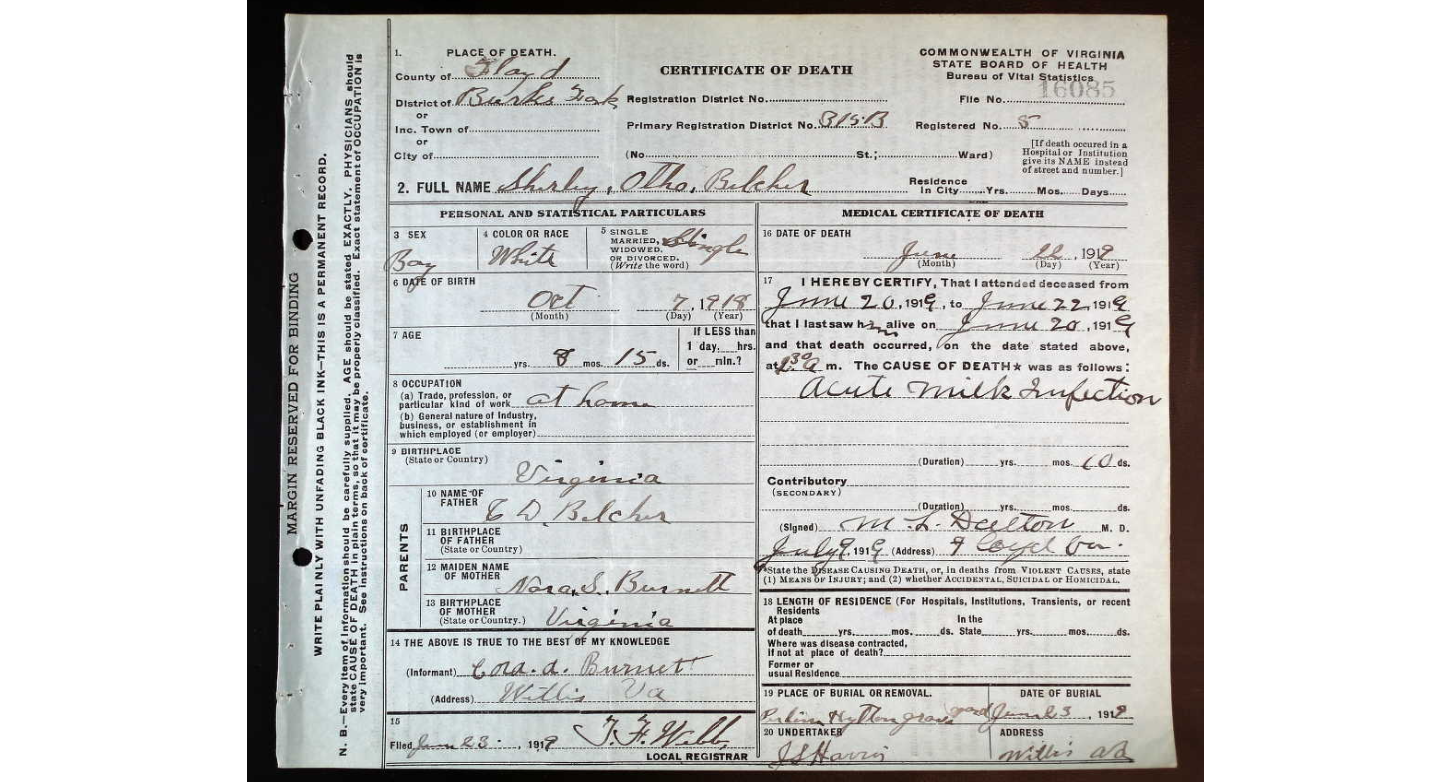 MARGIN RESERVED FOR BINDING
WRITE PLAINLY WITH UNFADING BLACK INK—THIS IS A PERMANENT RECORD.
N. B.—Every item of information should be carefully supplied. AGE should be stated EXACTLY. PHYSICIANS should
state CAUSE OF DEATH in plain terms, so that it may be properly classified. Exact statement of OCCUPATION is
very important. See instructions on back of certificate.
1. PLACE OF DEATH.
County of Floyd
District of Burks Fork
or
Inc. Town of
or
City of
CERTIFICATE OF DEATH
Registration District No.
Primary Registration District No. 315-B
(No. St.; Ward)
COMMONWEALTH OF VIRGINIA
STATE BOARD OF HEALTH
Bureau of Vital Statistics
File No. 16085
Registered No. 5
[If death occured in a
Hospital or Institution
give its NAME instead
of street and number.]
2. FULL NAME Shirley, Otho, Belcher
Residence
In City Yrs. Mos. Days
PERSONAL AND STATISTICAL PARTICULARS
3 SEX
Boy
4 COLOR OR RACE
White
5 SINGLE
MARRIED,
WIDOWED,
OR DIVORCED.
(Write the word)
Single
6 DATE OF BIRTH
Oct 7, 1918
(Month) (Day) (Year)
7 AGE
yrs. 8 mos. 15 ds.
If LESS than
1 day, hrs.
or min.?
8 OCCUPATION
(a) Trade, profession, or
particular kind of work at home
(b) General nature of Industry,
business, or establishment in
which employed (or employer)
9 BIRTHPLACE
(State or Country)
Virginia
PARENTS
10 NAME OF
FATHER
D. Belcher
11 BIRTHPLACE
OF FATHER
(State or Country)
12 MAIDEN NAME
OF MOTHER
Nora S. Burnett
13 BIRTHPLACE
OF MOTHER
(State or Country.)
Virginia
14 THE ABOVE IS TRUE TO THE BEST OF MY KNOWLEDGE
(Informant) Cora. A. Burnett
(Address) Willis Va
15
Filed June 23, 1919 F. F. Webb
LOCAL REGISTRAR
MEDICAL CERTIFICATE OF DEATH
16 DATE OF DEATH
June 22, 1919
(Month) (Day) (Year)
17 I HEREBY CERTIFY, That I attended deceased from
June 20, 1919, to June 22, 1919
that I last saw him alive on June 20, 1919
and that death occurred, on the date stated above,
at 30 a m. The CAUSE OF DEATH★ was as follows:
Acute Milk Infection
(Duration) yrs. mos. 10 ds.
Contributory
(SECONDARY)
(Duration) yrs. mos. ds.
(Signed) M. L. Dalton M. D.
July 9, 1919 (Address) Floyd Va.
*State the DISEASE CAUSING DEATH, or, in deaths from VIOLENT CAUSES, state
(1) MEANS OF INJURY; and (2) whether ACCIDENTAL, SUICIDAL or HOMICIDAL.
18 LENGTH OF RESIDENCE (For Hospitals, Institutions, Transients, or recent
Residents
At place In the
of death yrs. mos. ds. State yrs. mos. ds.
Where was disease contracted,
if not at place of death?
Former or
usual Residence
19 PLACE OF BURIAL OR REMOVAL.
Hylton grave yard
DATE OF BURIAL
June 23, 1919
20 UNDERTAKER
J S Harris
ADDRESS
Willis Va